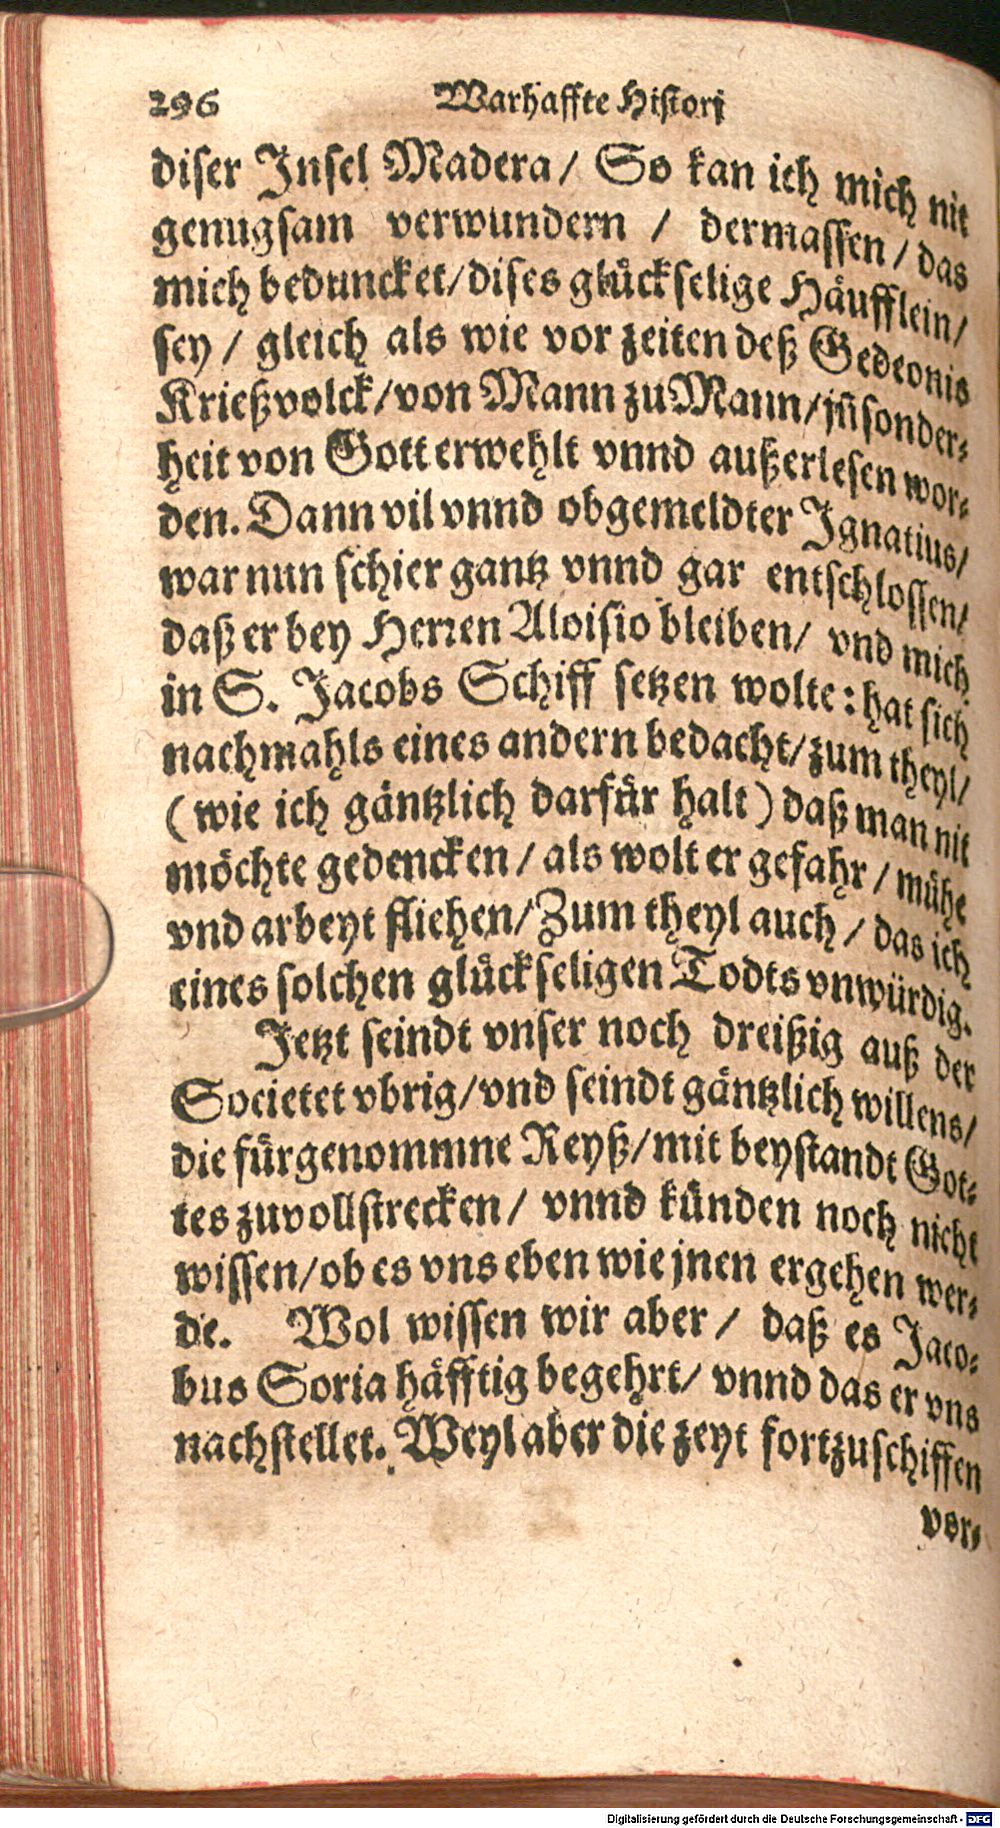 296 Warhaffte Historj
diser Insel Madera/ So kan ich mich nit
genugsam verwundern / dermassen/ das
mich beduncket/dises glückselige Häufflein/
sey / gleich als wie vor zeiten deß Gedeonis
Krießvolck/von Mann zu Mann/jnsonder-
heit von Gott erwehlt vnnd außerlesen wor-
den. Dann vil vnnd obgemeldter Ignatius/
war nun schier gantz vnnd gar entschlossen/
daß er bey Herren Aloisio bleiben/ vnd mich
in S. Jacobs Schiff setzen wolte: hat sich
nachmahls eines andern bedacht/zum theyl/
(wie ich gäntzlich darfür halt) daß man nit
möchte gedencken/als wolt er gefahr/mühe
vnd arbeyt fliehen/Zum theyl auch/das ich
eines solchen glückseligen Todts vnwürdig.
Jetzt seindt vnser noch dreißig auß der
Societet vbrig/vnd seindt gäntzlich willens/
die fürgenommne Reyß/mit beystandt Got-
tes zuvollstrecken/ vnnd künden noch nicht
wissen/ob es vns eben wie jnen ergehen wer-
de. Wol wissen wir aber/ daß es Jaco-
bus Soria häfftig begehrt/ vnnd das er vns
nachstellet. Weyl aber die zeyt fortzuschiffen
vor-
Digitalisierung gefördert durch die Deutsche Forschungsgemeinschaft - DFG